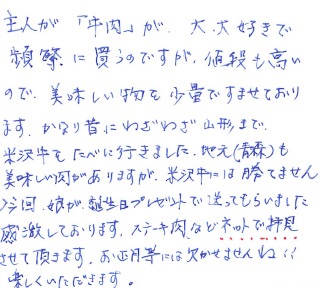 主人が「牛肉」が、大、大好きで
頻繁に買うのですが、値段も高い
ので、美味しい物を少量ですませており
ます。かなり昔にわざわざ山形まで、
米沢牛をたべに行きました。地元(青森)も
美味しい肉がありますが、米沢牛には勝てません
今回、娘が、誕生日プレゼントで送ってもらいました
感激しております。ステーキ肉などネットで拝見
させて頂きます。お正月等には欠かせませんね!!
楽しくいただきます。